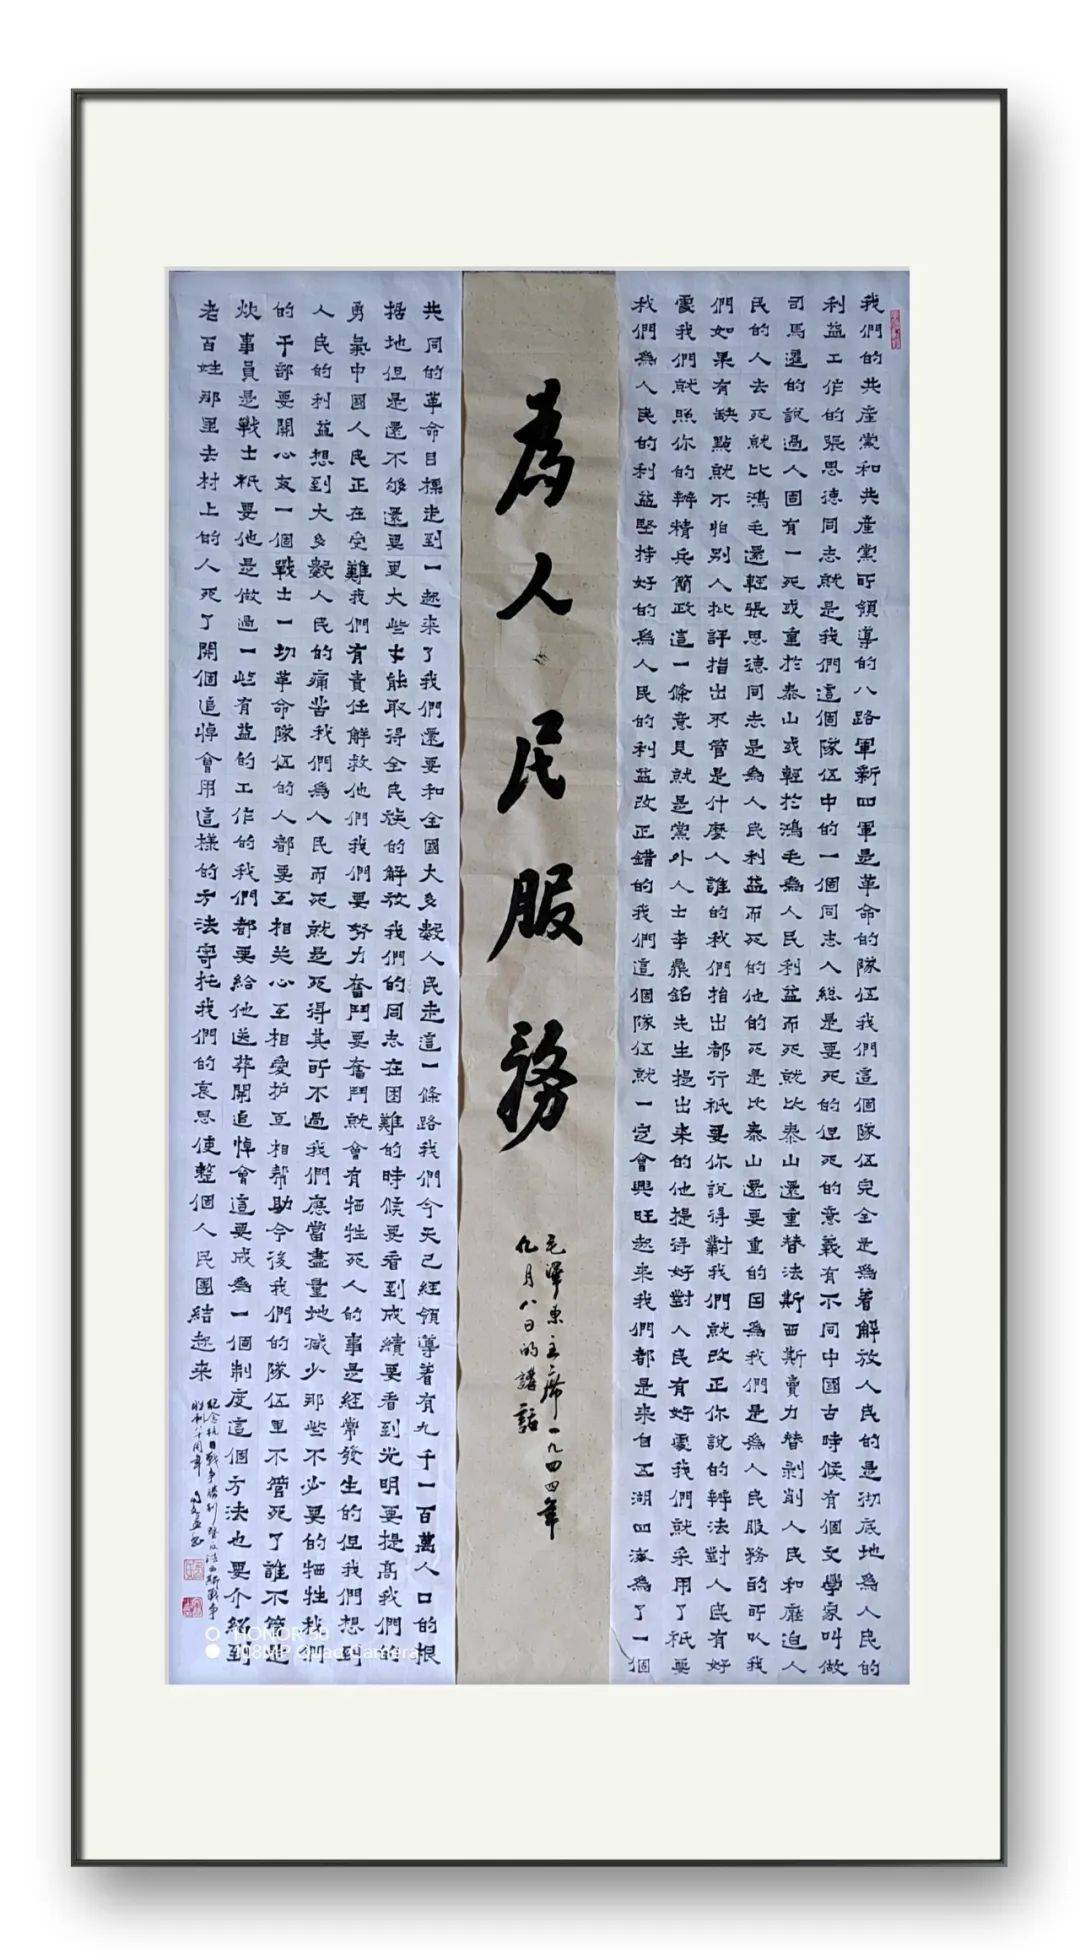 我們的共產黨和共產黨所領導的八路軍新四軍是革命的隊伍我們這個隊伍完全是為着解放人民的是彻底地為人民的
利益工作的張思德同志就是我們這個隊伍中的一個同志人總是要死的但死的意義有不同中國古時候有個文學家叫做
司馬遷的說過人固有一死或重於泰山或輕於鴻毛為人民利益而死就比泰山還重替法斯西斯賣力替剥削人民和壓迫人
民的人去死就比鴻毛還輕張思德同志是為人民利益而死的他的死是比泰山還要重的因為我們是為人民服務的所以我
們如果有缺點就不怕別人批評指出不管是什麼人誰的我們指出都行祇要你說得對我們就改正你說的辦法對人民有好
處我們就照你的辦精兵簡政這一條意見就是黨外人士李鼎銘先生提出來的他提得好對人民有好處我們就采用了祇要
我們為人民的利益堅持好的為人民的利益改正錯的我們這個隊伍就一定會興旺起來我們都是來自五湖四海為了一個
為人民服務
毛澤東主席一九四四年
九月八日的講話
共同的革命目標走到一起來了我們還要和全國大多數人民走這一條路我們今天已經領導着有九千一百萬人口的根
据地但是還不够還要更大些才能取得全民族的解放我們的同志在困難的時候要看到成績要看到光明要提高我們的
勇氣中國人民正在受難我們有責任解救他們我們要努力奮鬥要奮鬥就會有牺牲死人的事是經常發生的但我們想到
人民的利益想到大多數人民的痛苦我們為人民而死就是死得其所不過我們應當盡量地减少那些不必要的牺牲我們
的干部要關心每一個戰士一切革命隊伍的人都要互相关心互相愛护互相帮助今後我們的隊伍里不管死了誰不管是
炊事員是戰士祇要他是做過一些有益的工作的我們都要給他送葬開追悼會這要成為一個制度這個方法也要介紹到
老百姓那里去村上的人死了開個追悼會用這樣的方法寄托我們的哀思使整個人民團結起來
纪念抗日戰争勝利暨反法西斯戰争
胜利八十周年
HONOR 50
108MP Quad Camera